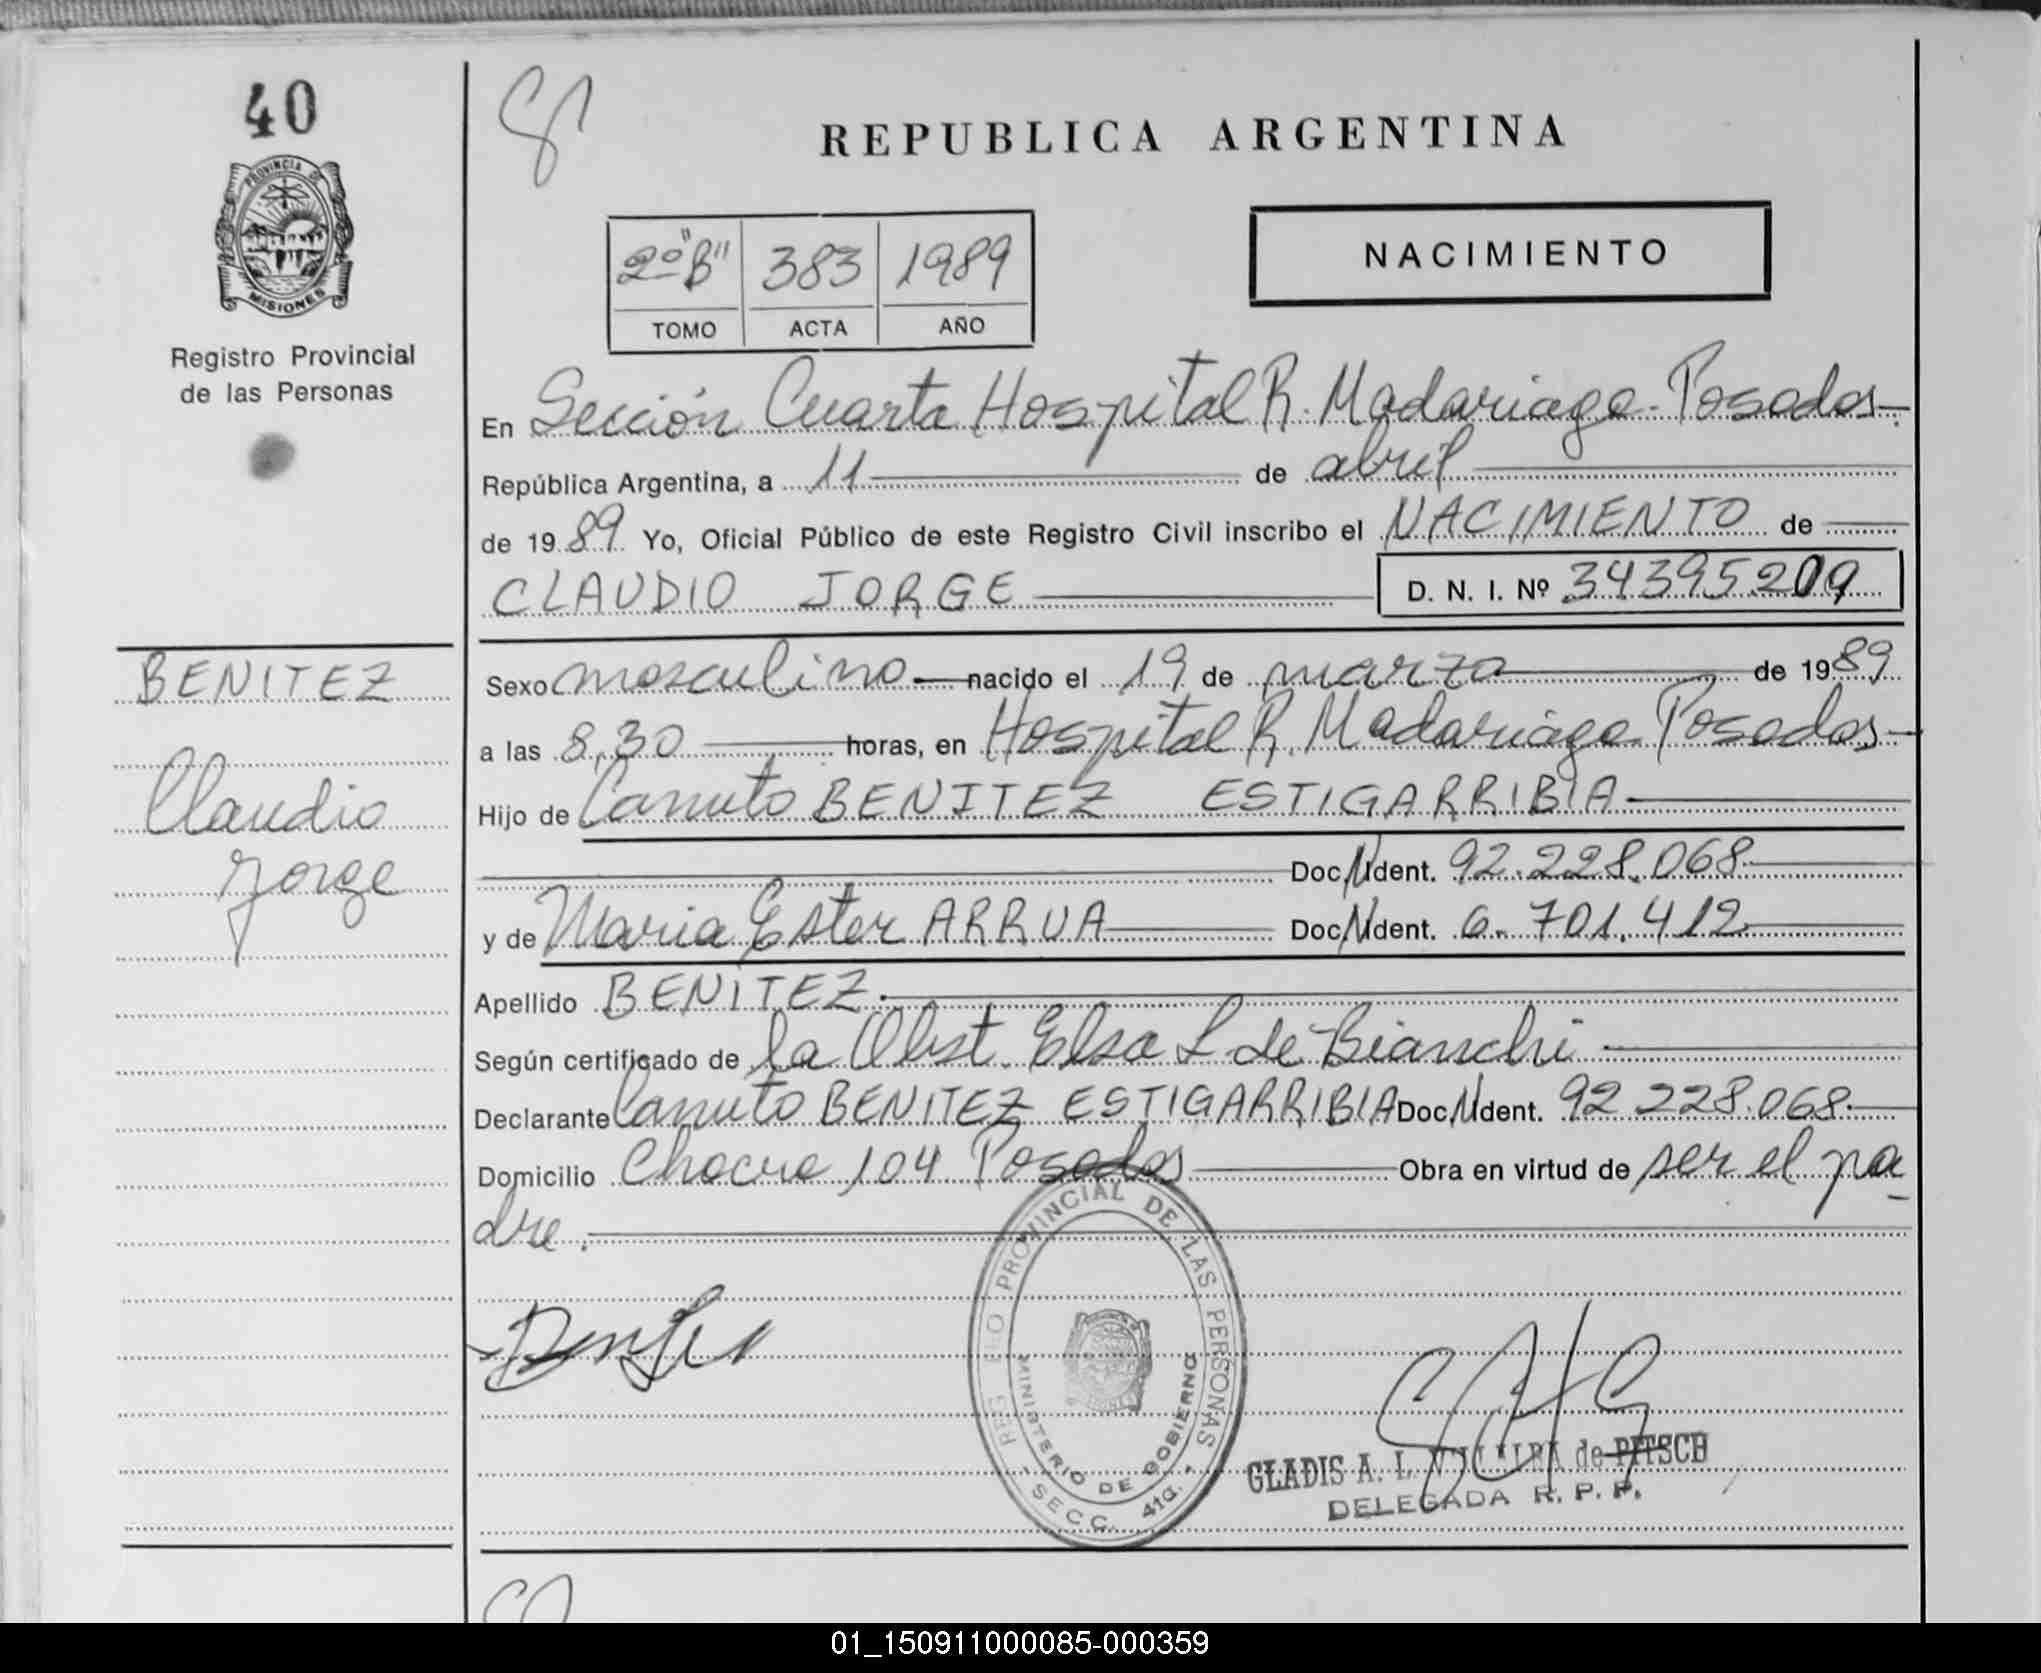 40
REPUBLICA ARGENTINA
PROVINCIA DE
MISIONES
2º "B" 383 1989
TOMO ACTA AÑO
NACIMIENTO
Registro Provincial
de las Personas
En Sección Cuarta Hospital R. Madariaga - Posadas -
República Argentina, a 11 de abril
de 1989 Yo, Oficial Público de este Registro Civil inscribo el NACIMIENTO de
CLAUDIO JORGE D. N. I. Nº 34395209
BENITEZ
Claudio
Jorge
Sexo masculino nacido el 19 de marzo de 1989
a las 8,30 horas, en Hospital R. Madariaga Posadas -
Hijo de Canuto BENITEZ ESTIGARRIBIA
Doc. Ident. 92.228.068
y de Maria Ester ARRUA Doc. Ident. 6.701.412
Apellido BENITEZ.
Según certificado de la Obst. Elsa L de Bianchi
Declarante Canuto BENITEZ ESTIGARRIBIA Doc. Ident. 92 228.068
Domicilio Chacra 104 Posadas Obra en virtud de ser el pa-
dre.
PROVINCIAL DE LAS PERSONAS
MINISTERIO DE GOBIERNO
- SECC. 4ta. -
GLADIS A. L. de PITSCH
DELEGADA R. P. P.
01_150911000085-000359